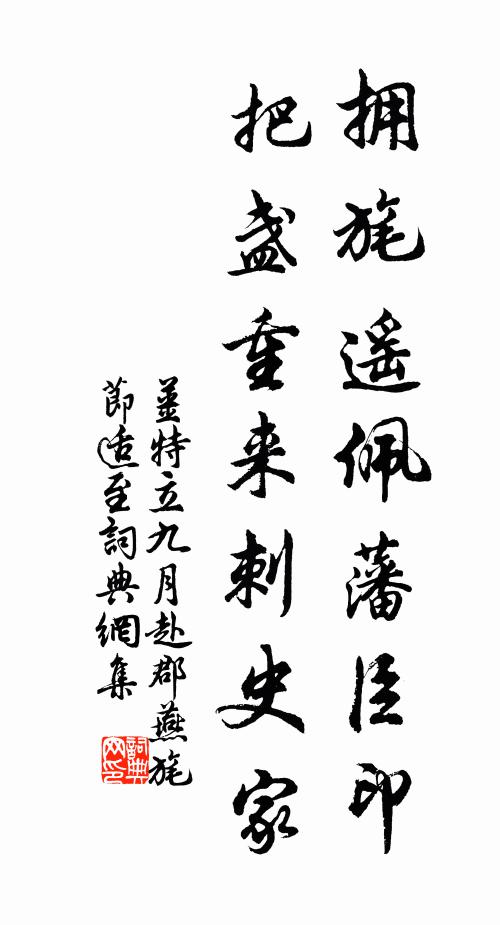 拥旄遥佩藩臣印
把盏重来刺史家
姜特立九月赴郡燕旄
节适至詞典網集
詞典網印